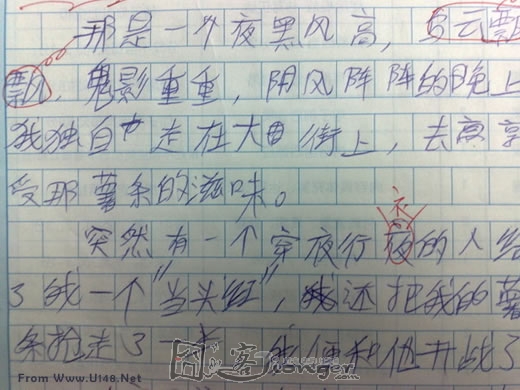 那是一个夜黑风高,乌云飘
飘,鬼影重重,阴风阵阵的晚上
我独自 走在大 街上,去 享
受那薯条的滋味。
衣
突然有一个穿夜行夜的人给
了我一个"当头红",还把我的薯
条抢走了一 我便和他开战了
囧客Thonger.com
From Www.U148.Net